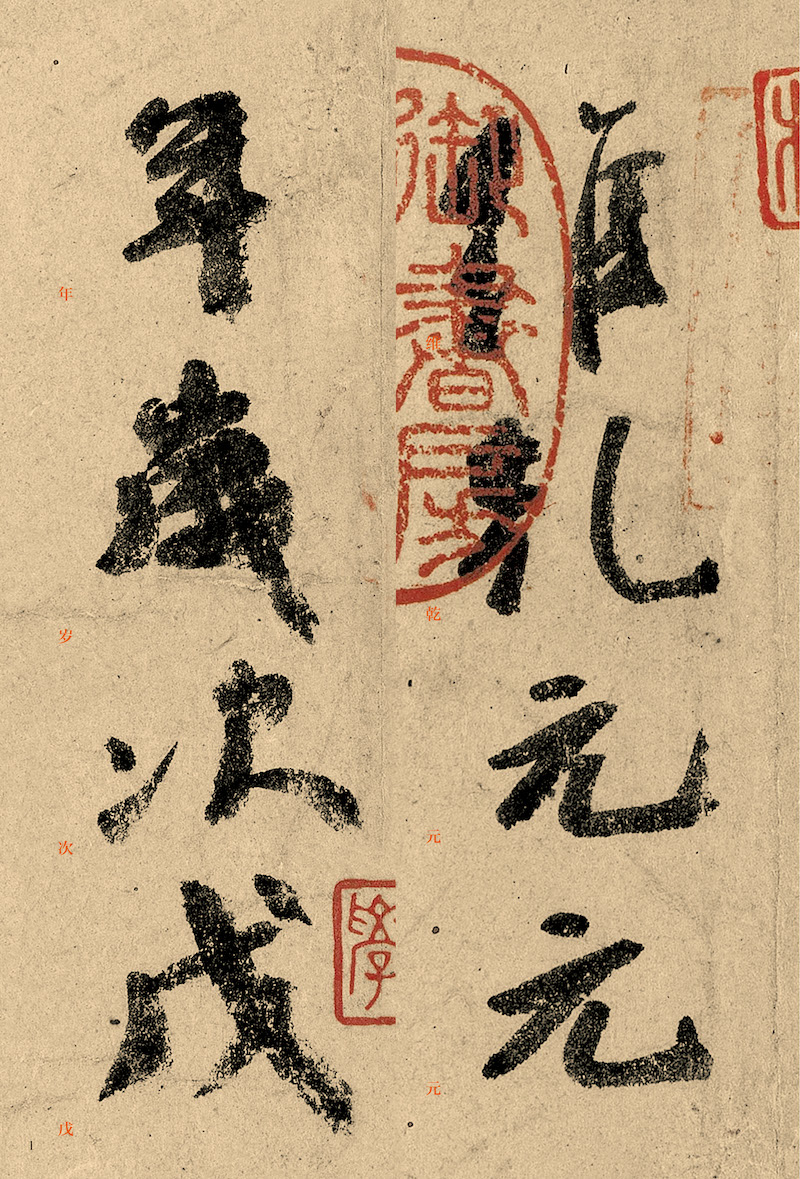 維乾元元
年歲次戊
维 乾 元 元
年 岁 次 戊
御書房
1